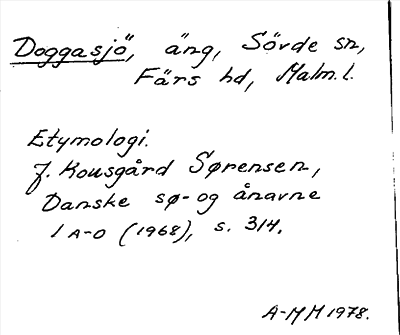 Doggasjö, äng, Sövde sn,
Färs hd, Malm. l.
Etymologi.
J. Kousgård Sørensen,
Danske sø- og ånavne
1 A-O (1968), s. 314.
A-MH 1978.